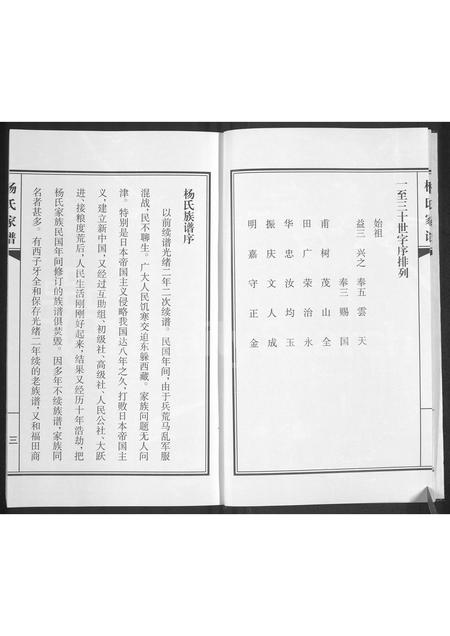 杨氏家谱
一至三十世字序排列
始祖
益三 兴之 奉五 雲 天
奉三 赐 国
甫 树 茂 山 全
田 广 荣 治 永
华 忠 汝 均 玉
振 庆 文 人 成
明 嘉 守 正 金
杨氏族谱序
以前续谱光绪二年二次续谱。民国年间,由于兵荒马乱军服
混战,民不聊生。广大人民饥寒交迫东躲西藏。家族问题无人问
津。特别是日本帝国主义侵略我国达八年之久,打败日本帝国主
义,建立新中国,又经过互助组、初级社、高级社、人民公社、大跃
进、接粮度荒后,人民生活刚刚好起来,结果又经历十年浩劫,把
杨氏家族民国年间修订的族谱俱焚毁。因多年不续族谱,家族同
名者甚多。有西子牙全和保存光绪二年续的老族谱,又和福田商
杨氏家谱
三